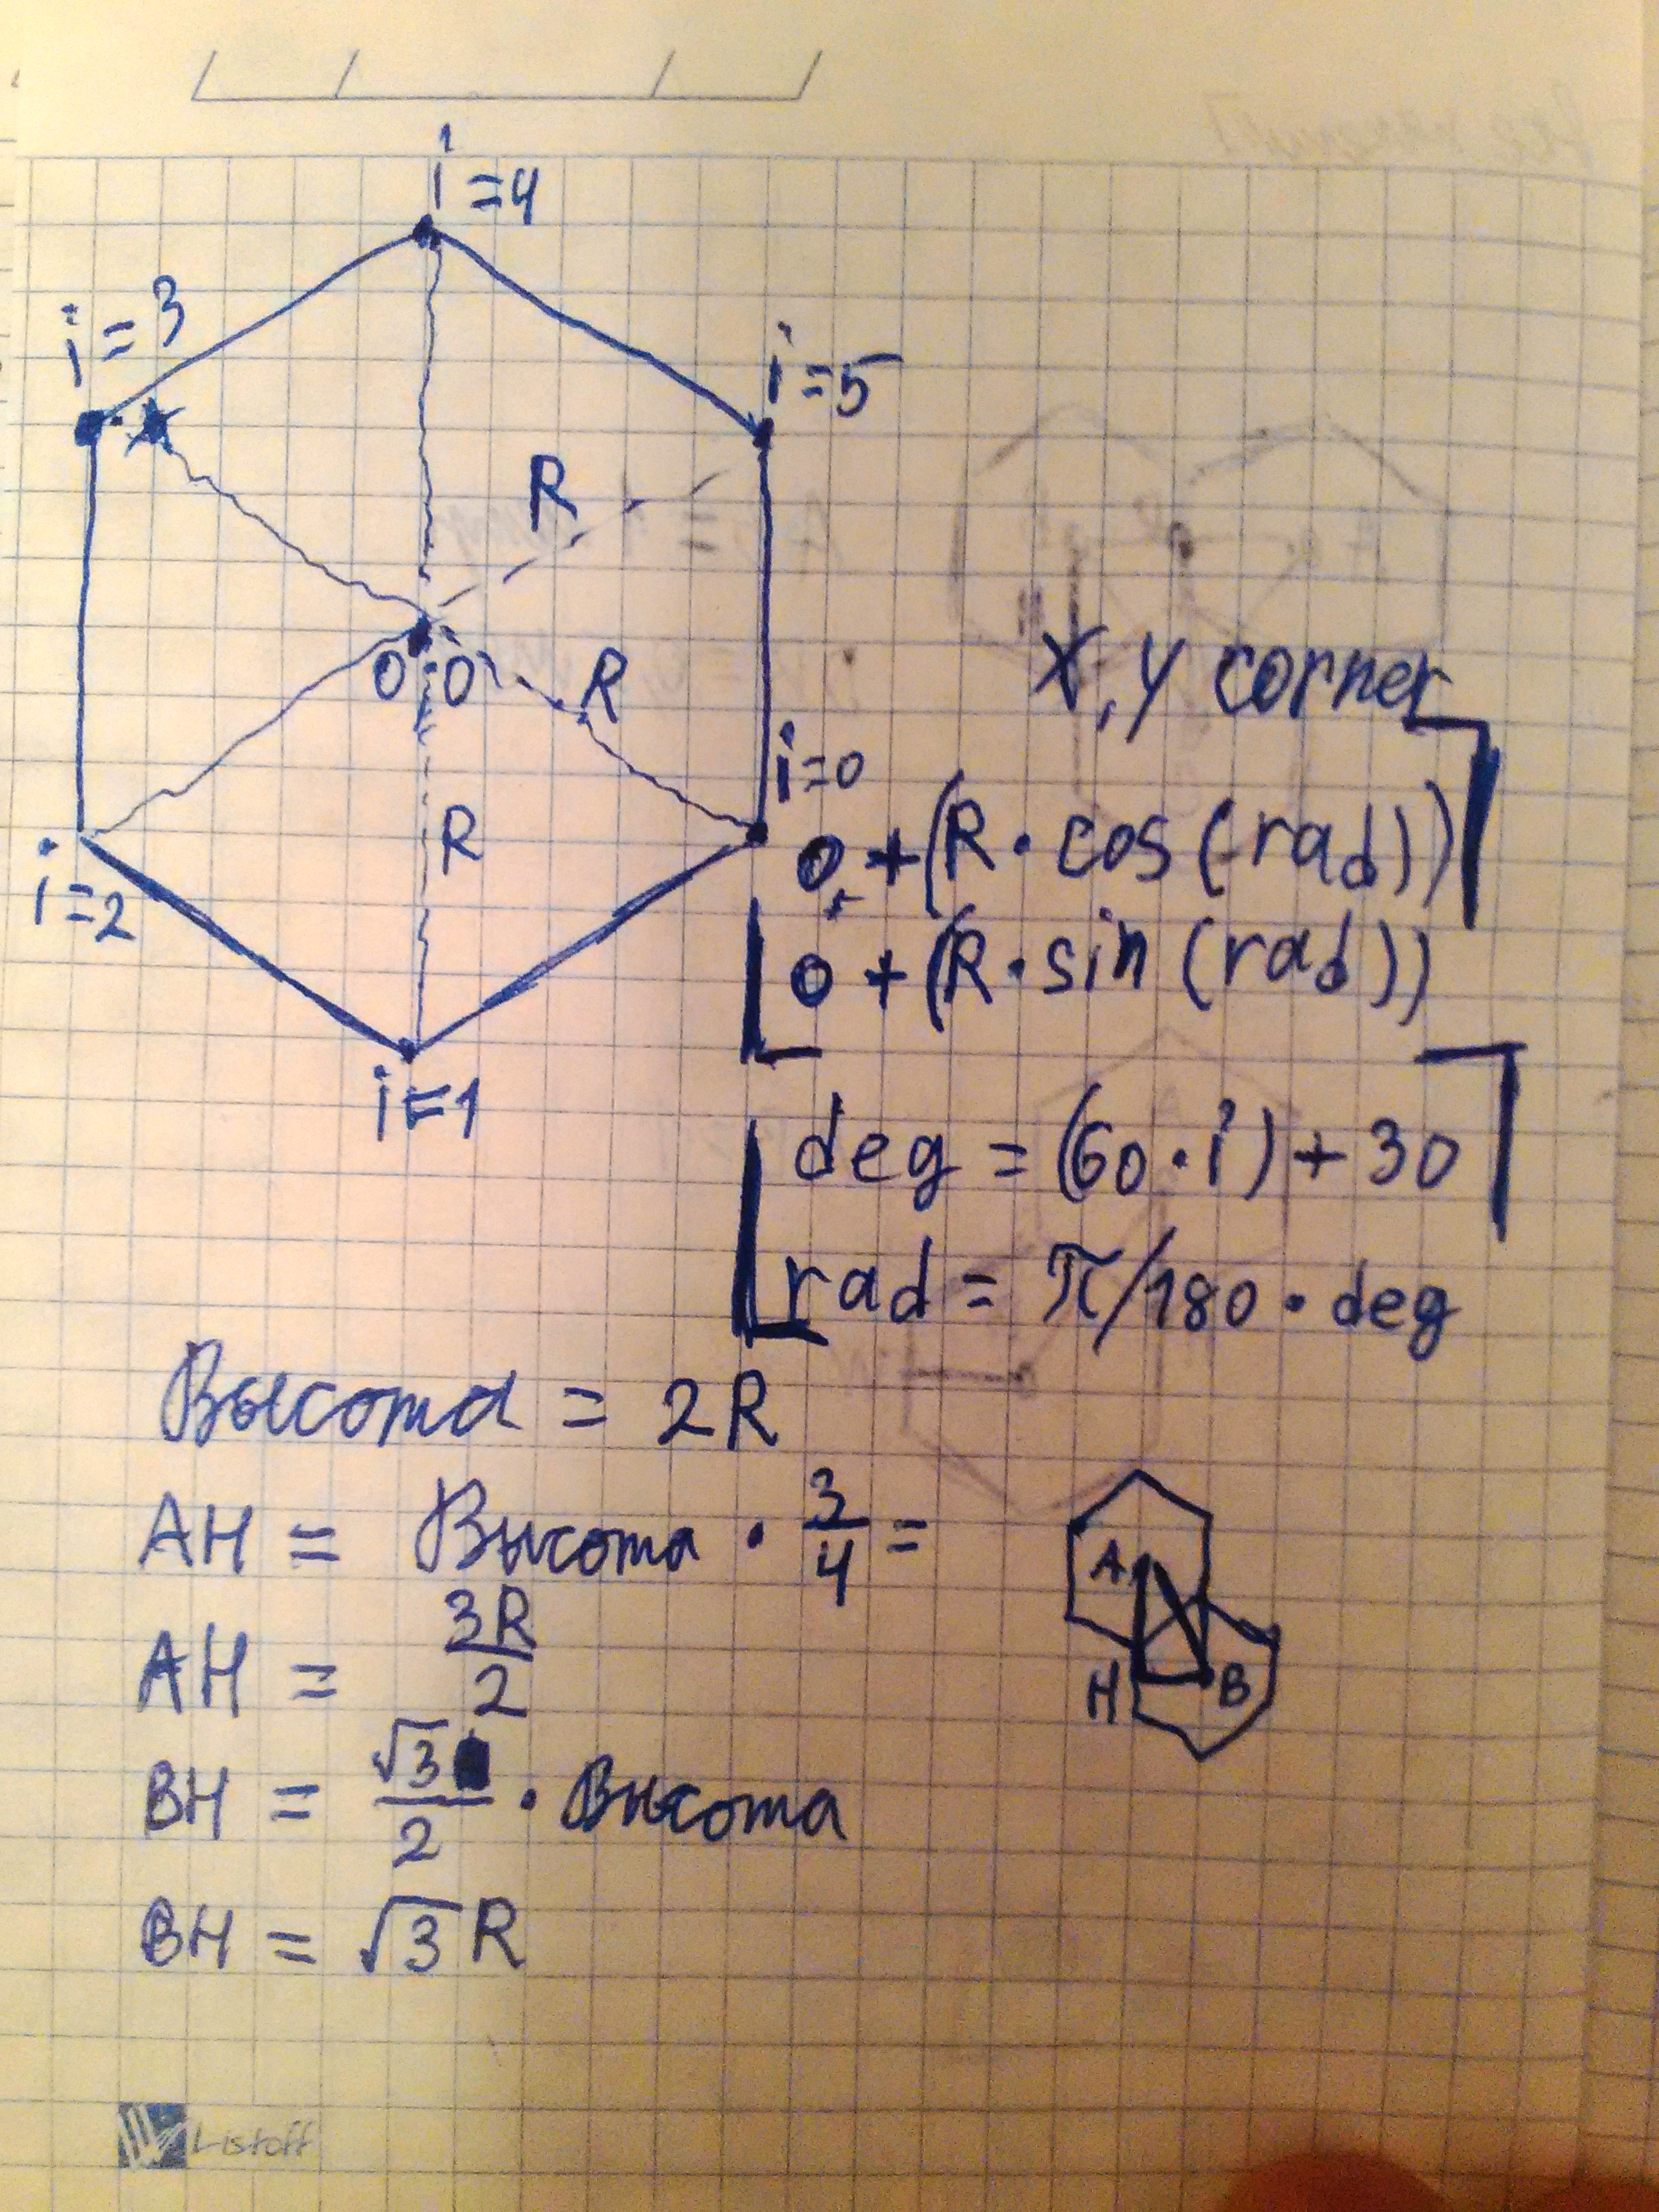 i=4
i=3
i=5
R
0;0
R
i=0
R
i=2
i=1
X, Y corner
0 + (R · cos (rad))
0 + (R · sin (rad))
deg = (60 · i) + 30
rad = π/180 · deg
Высота = 2R
AH = Высота · 3/4 =
AH = 3R/2
BH = √3/2 · Высота
BH = √3 R
A
H
B
Listoff